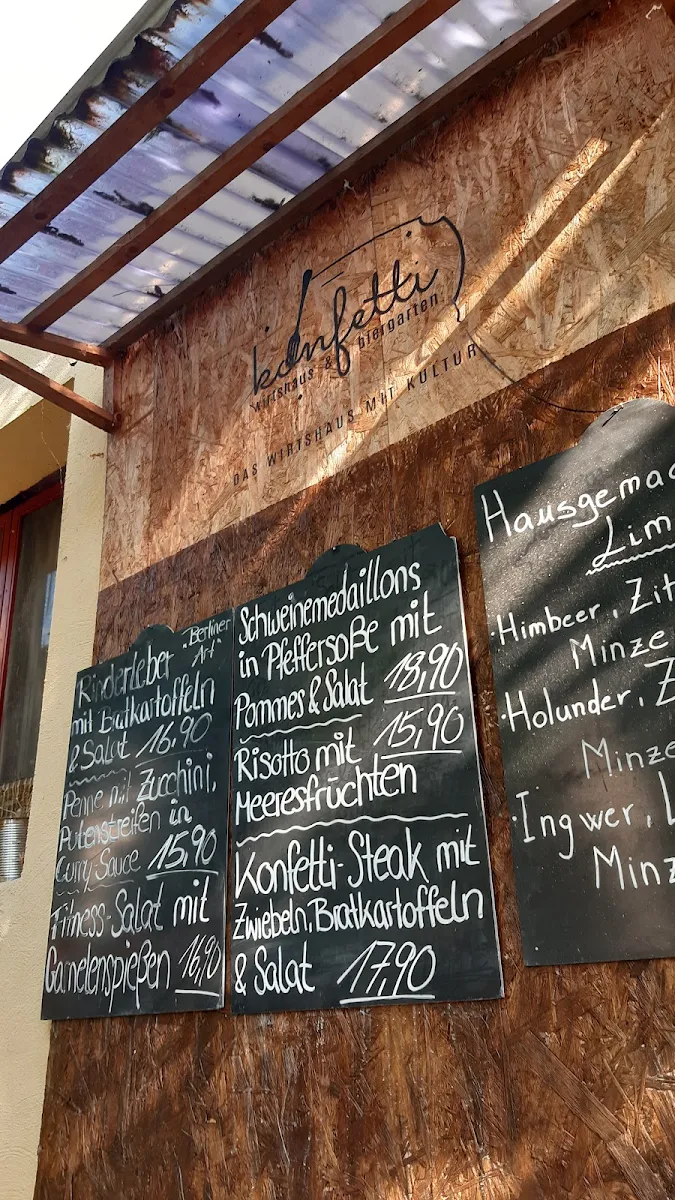 konfetti
wirtshaus & biergarten
DAS WIRTSHAUS MIT KULTUR
Rinderleber "Berliner
Art"
mit Bratkartoffeln
& Salat 16,90
Penne mit Zucchini,
Putenstreifen in
Curry-Sauce 15,90
Fitness-Salat mit
Garnelenspießen 16,90
Schweinemedaillons
in Pfeffersoße mit
Pommes & Salat 18,90
Risotto mit 15,90
Meeresfrüchten
Konfetti-Steak mit
Zwiebeln, Bratkartoffeln
& Salat 17,90
Hausgemac
Lim
· Himbeer, Zit
Minze
· Holunder, Z
Minze
· Ingwer, L
Minz